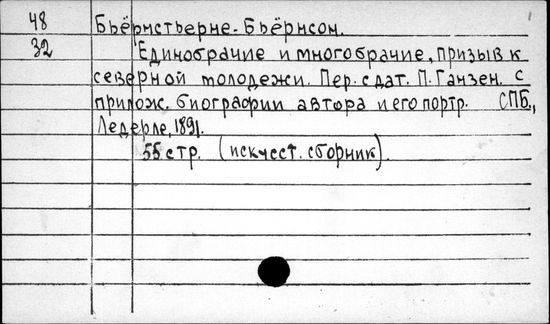 48 Бьёрнстьерне-Бьёрнсон.
32 Единобрачие и многобрачие, призыв к
северной молодежи. Пер. с дат. П. Ганзен. С
прилож. биографии автора и его портр. СПБ.,
Ледерле, 1891.
55 стр. (искусст. сборник).